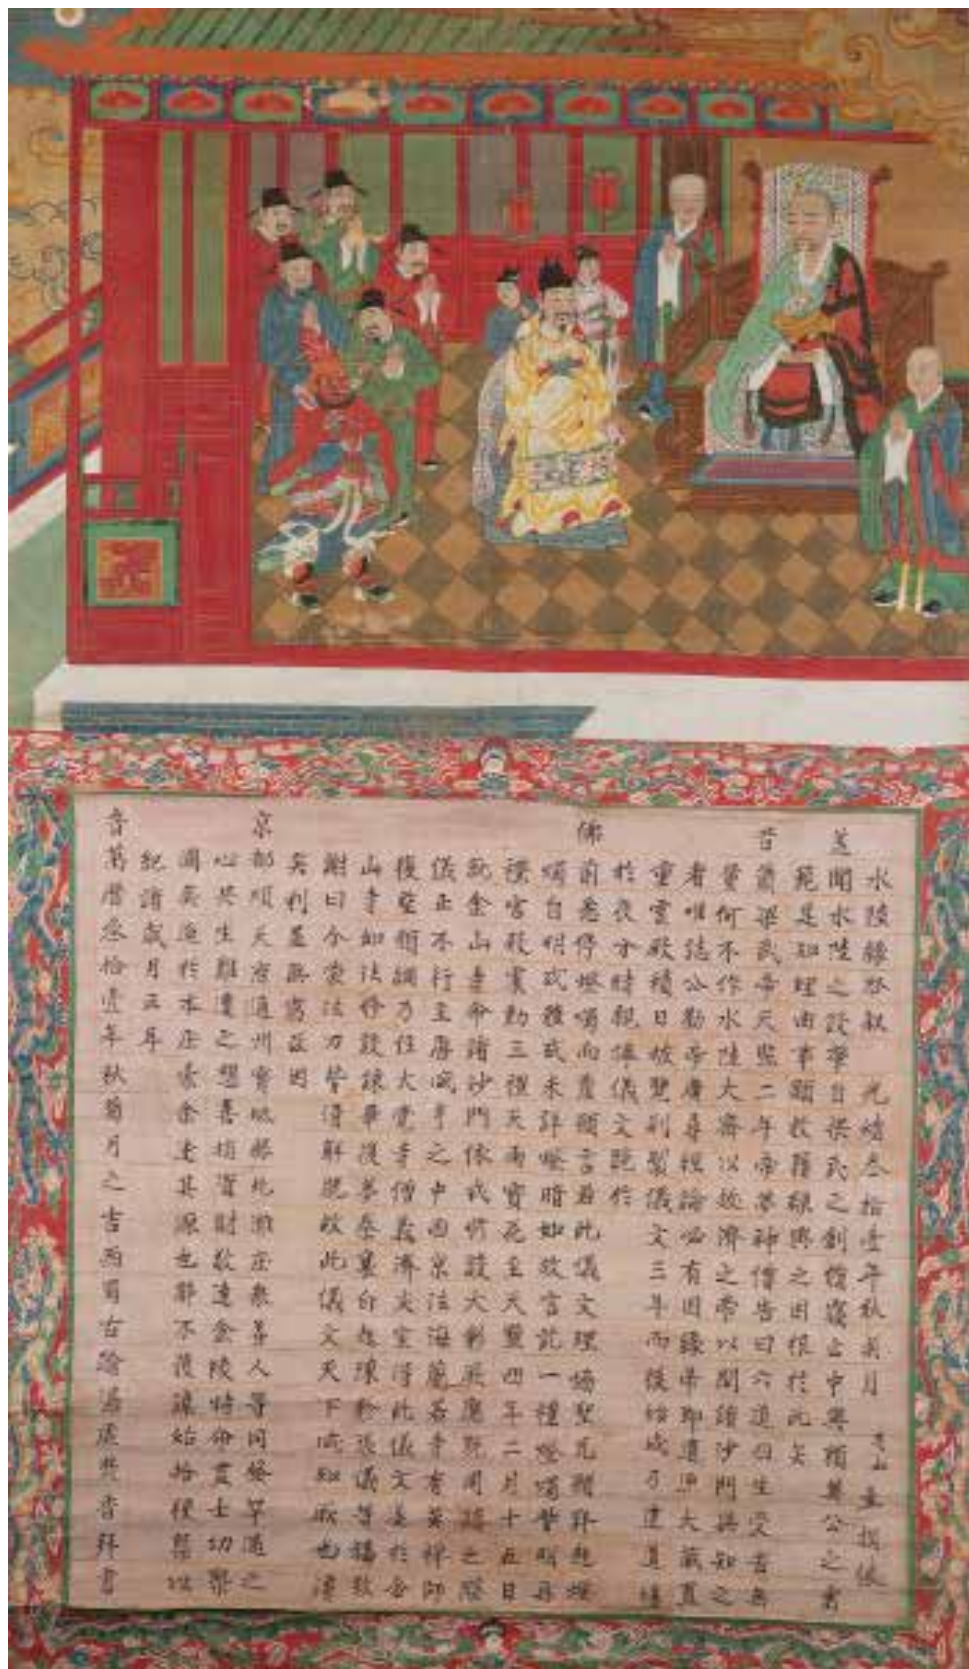 水陸緣起叙　光緒叁拾壹年秋菊月 重摸依
盖聞水陸之設肇自梁武之創檀 中興禎英公之書
範是知理由事顕教籍緣興之因很於此矣
昔蕭梁武帝天監二年帝夢神僧告曰六道四生受苦無
量何不作水陸大齋以救濟之帝以問諸沙門無知之
者唯誌公勸帝廣尋經論必有因緣帝即遣迎大藏直
重雲殿積日披覽列製儀文三年而後始成乃建道場
於夜分時親捧儀文跪於
佛前悉停燈燭而宣願言若此儀文理協聖凡願拜起燈
燭自明或體或未詳燈暗如故言訖一禮燈燭皆明再
禮宮殿震動三禮天雨寶花至天監四年二月十五日
就金山寺命諸沙門依式修設大彰厥應既周隋之際
儀正不行至唐咸亨之中西京法海蘭若寺有英禪師
復整頓綱乃往大覺寺僧義濟處室得此儀文遂於金
山寺如法修設 畢復夢秦 陳軫張儀等 致
謝曰今蒙法力皆得解脱故此儀文天下咸知 也
矣利益無窮茲因
京都順天府通州寳坻縣北 庄衆善人等同發罕遇之
心共生難遭之想善捐資財敬 金陵特命畫士功畢
周矣迎於本庄索余述其源也鄙不獲讓始拾俚 以
紀諸歲月五年
旹萬曆叁拾壹年秋菊月之吉西蜀古渝 焚香拜書